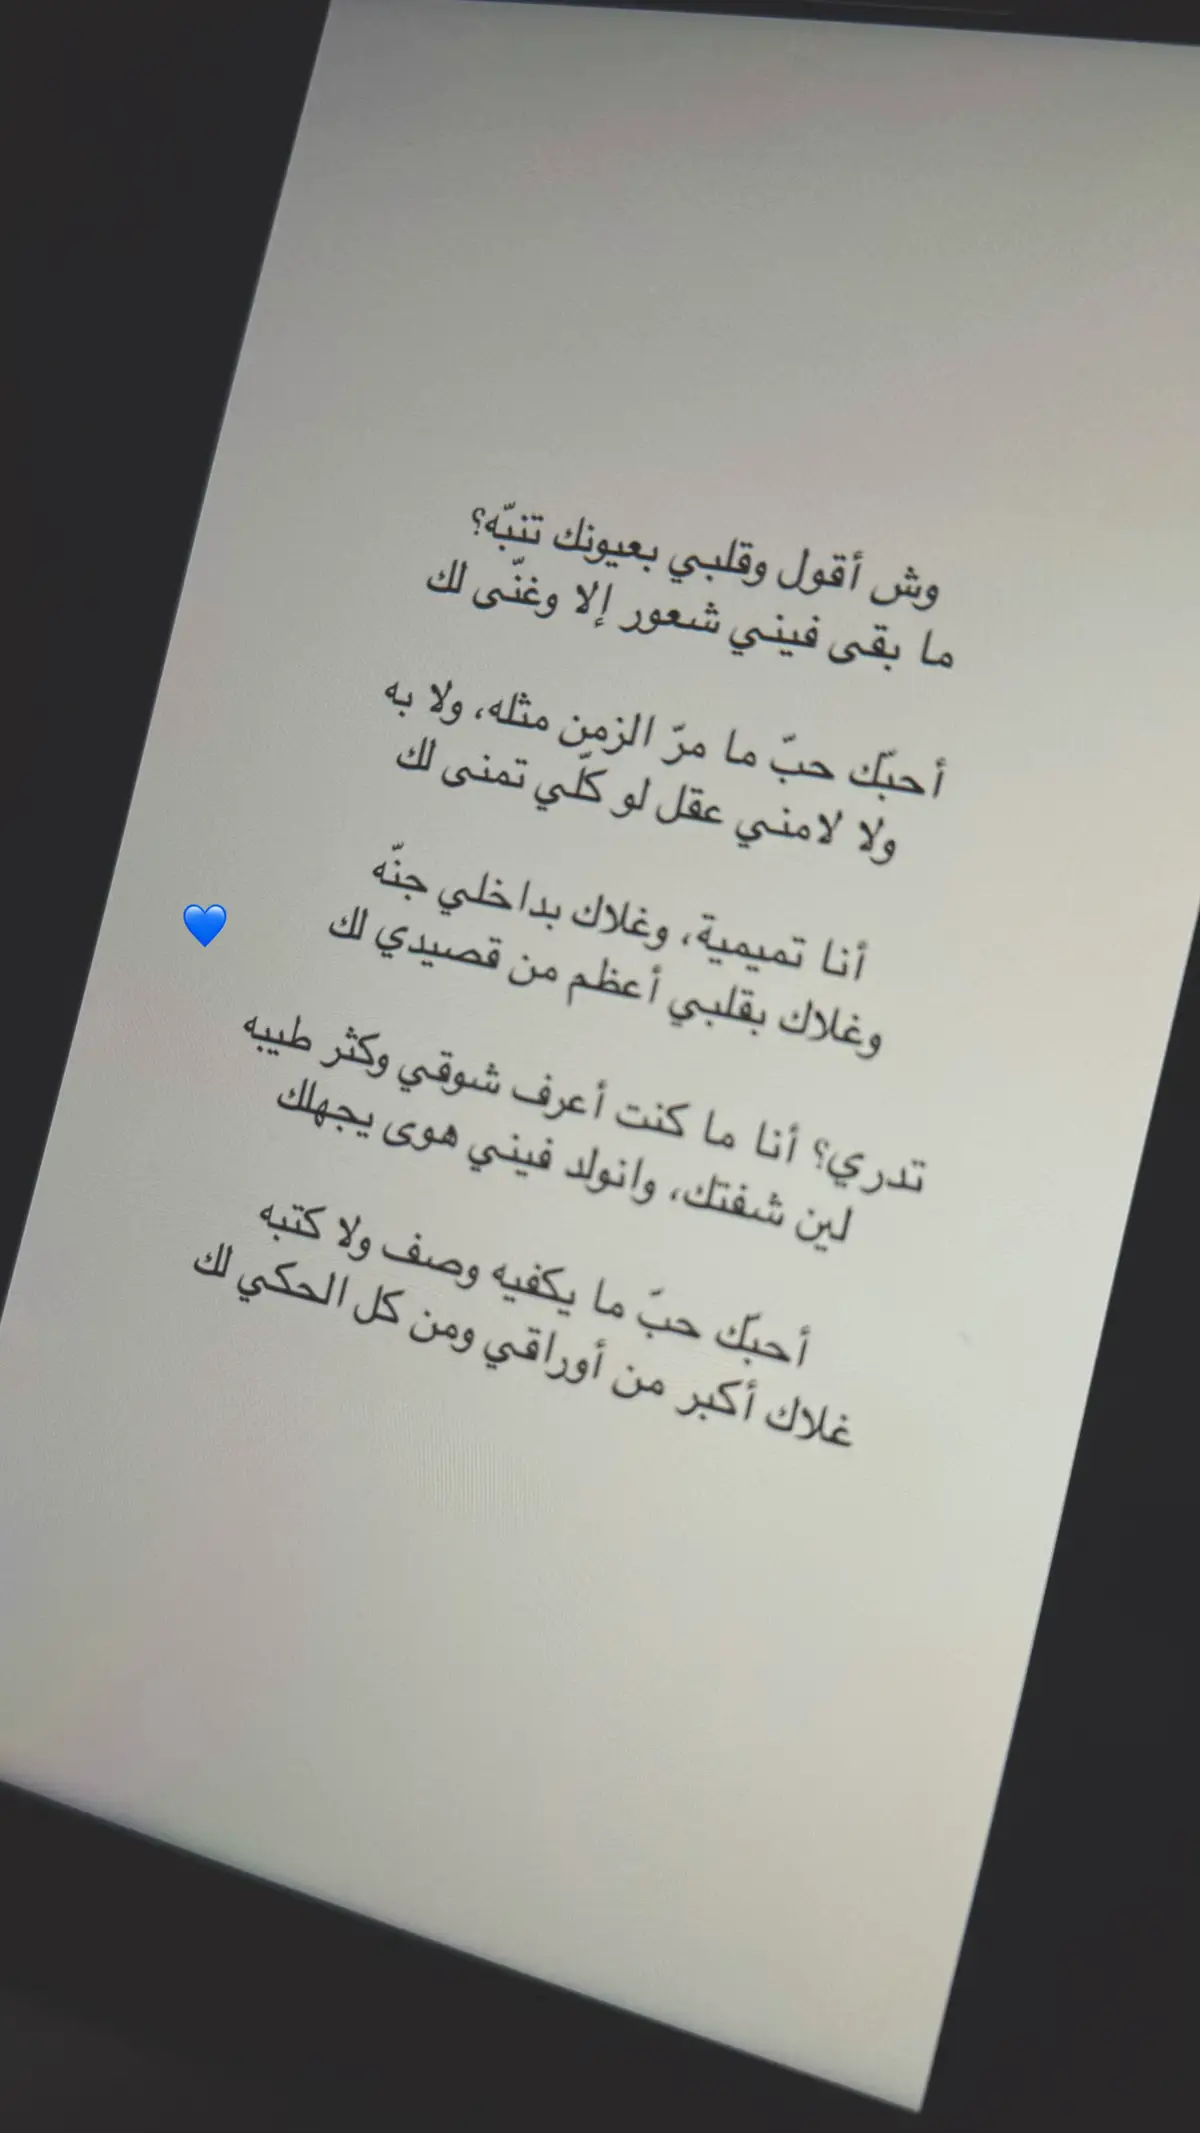 وش أقول وقلبي بعيونك تنبّه؟
ما بقى فيني شعور إلا وغنّى لك
أحبّك حبّ ما مرّ الزمن مثله، ولا به
ولا لامني عقل لو كلّي تمنى لك
أنا تميمية، وغلاك بداخلي جنّه
وغلاك بقلبي أعظم من قصيدي لك
تدري؟ أنا ما كنت أعرف شوقي وكثر طيبه
لين شفتك، وانولد فيني هوى يجهلك
أحبّك حبّ ما يكفيه وصف ولا كتبه
غلاك أكبر من أوراقي ومن كل الحكي لك